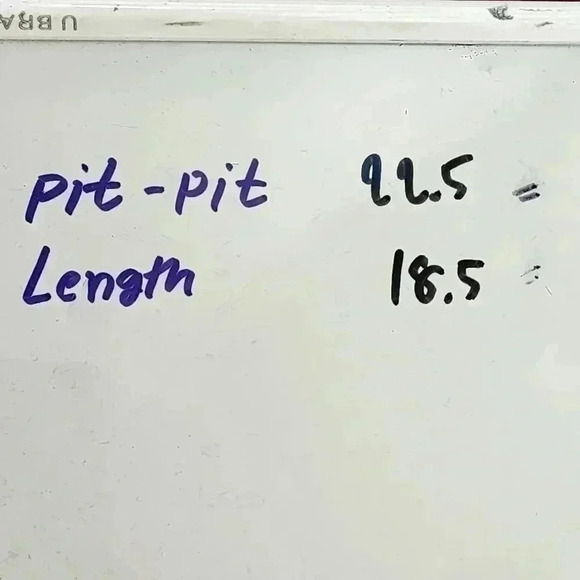 UBRA
pit-pit 22.5 =
Length 18.5 =